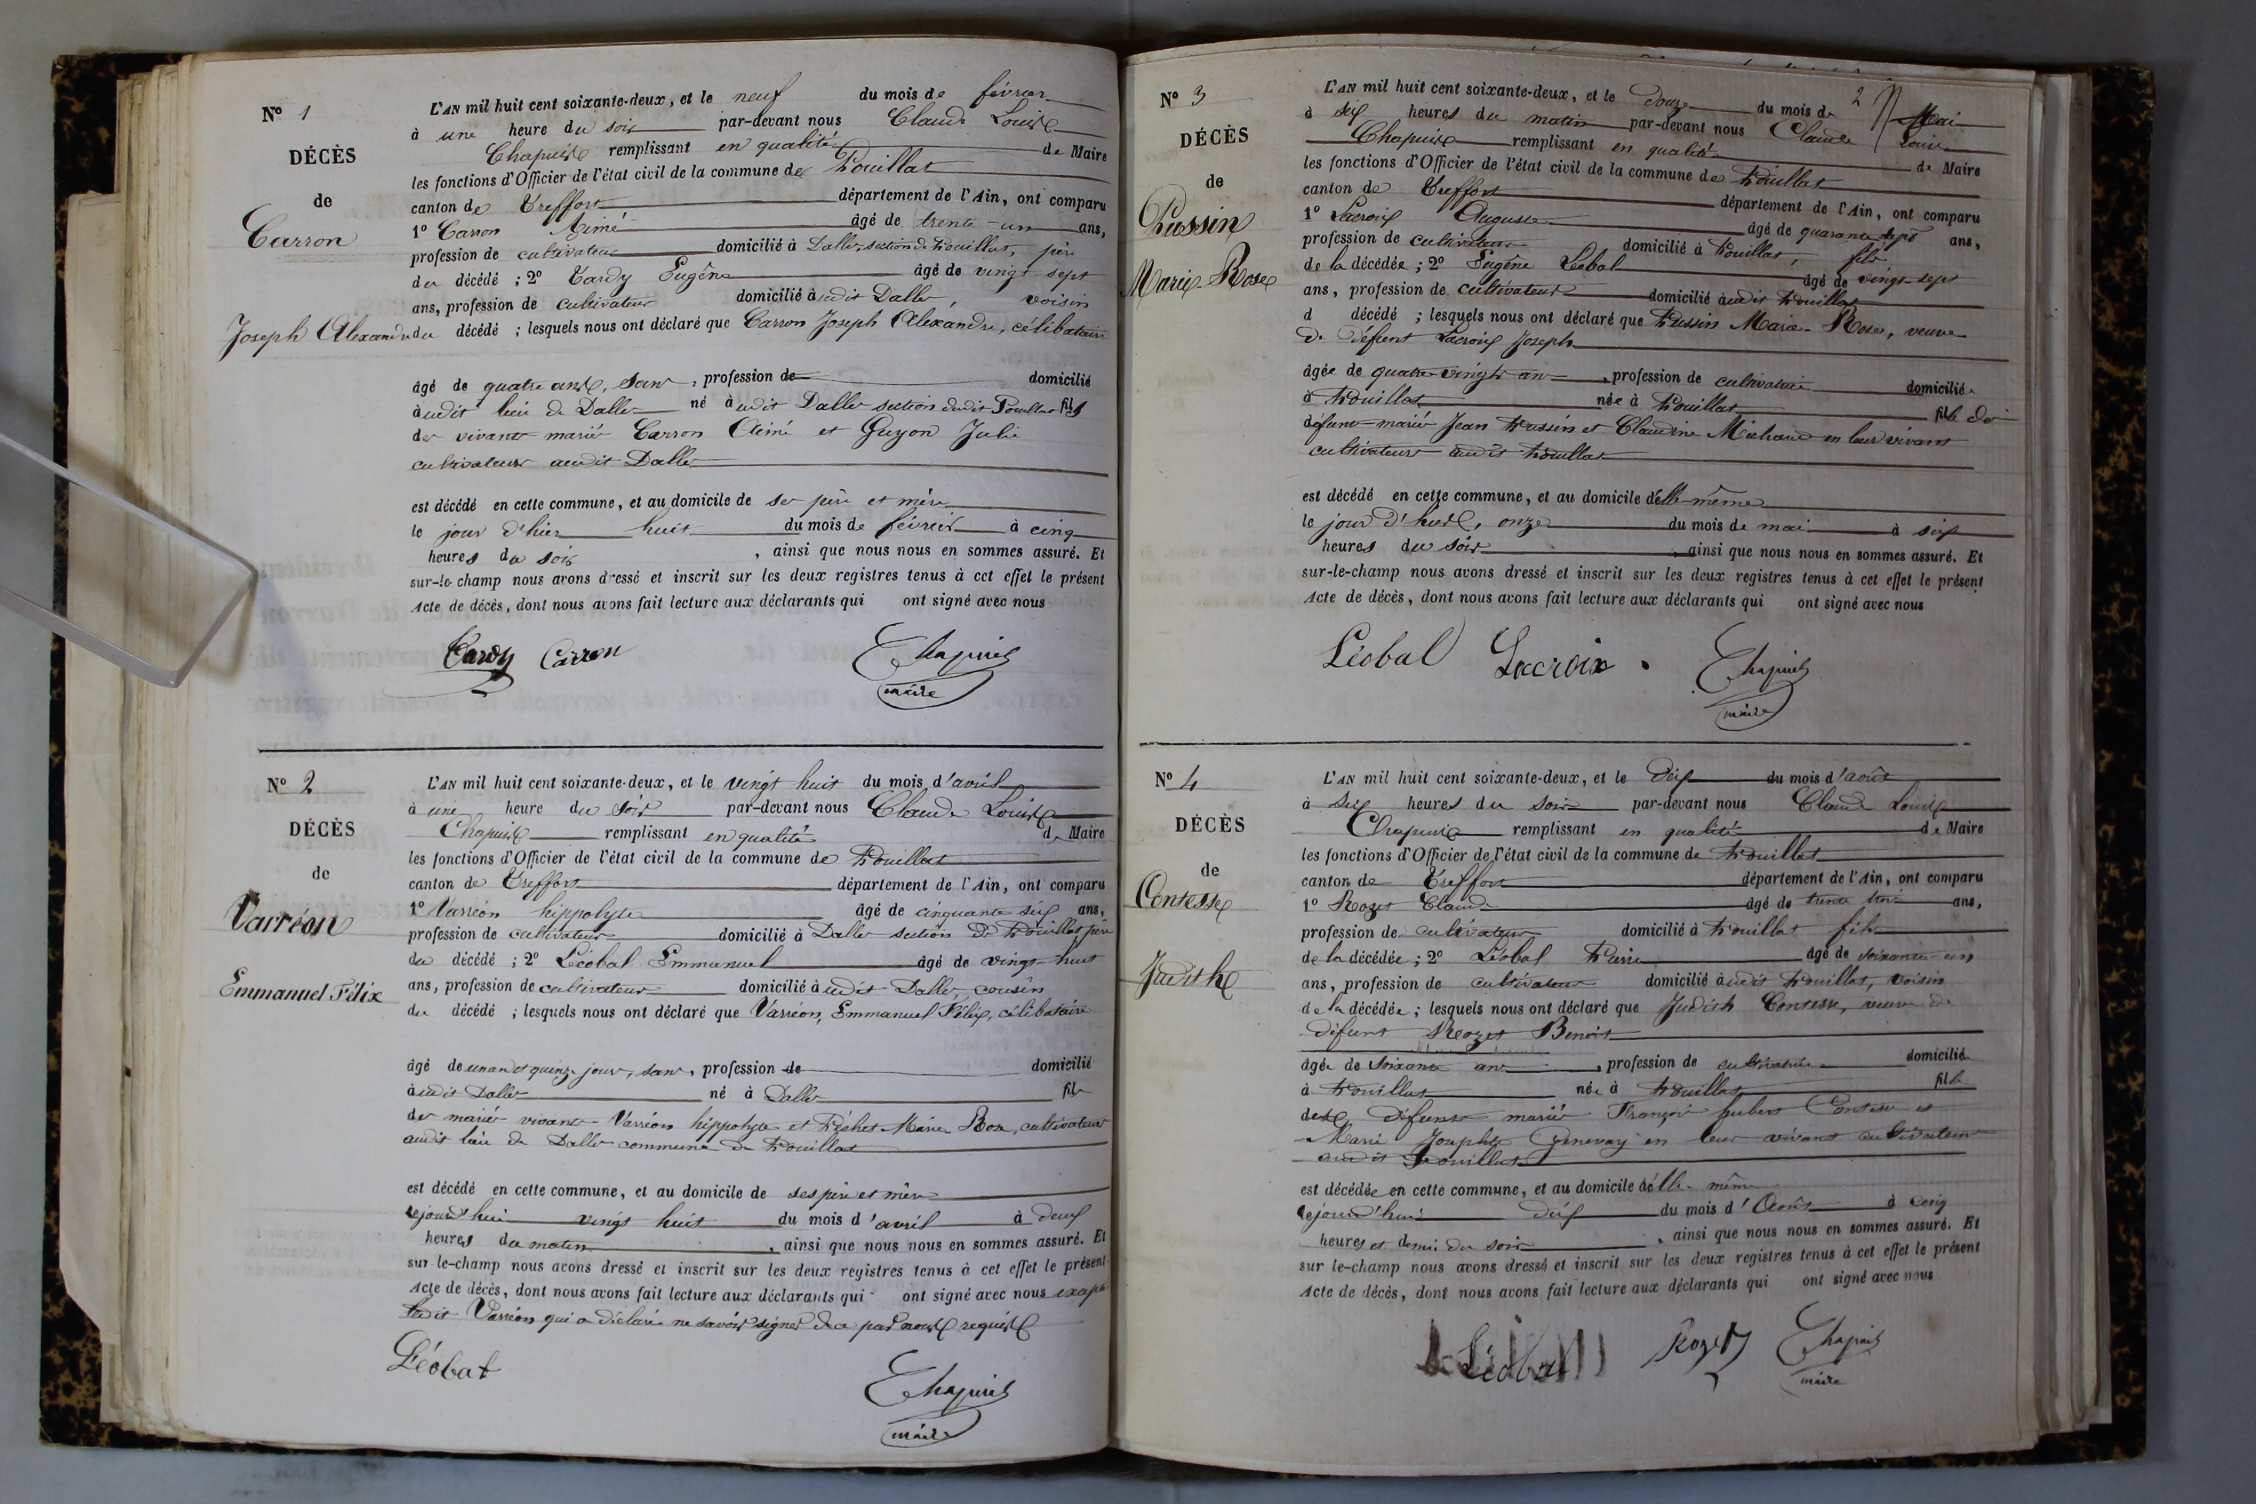 N° 1
DÉCÈS
de
Carron
Joseph Alexandre
L'AN mil huit cent soixante-deux, et le neuf du mois de février
à une heure du soir par-devant nous Claude Louis
Chapuis remplissant en qualité de Maire
les fonctions d'Officier de l'état civil de la commune de Pouillat
canton de Treffort département de l'Ain, ont comparu
1° Carron Aimé âgé de trente un ans,
profession de cultivateur domicilié à Dalles section de Pouillat, père
du décédé ; 2° Tardy Eugène âgé de vingt sept
ans, profession de cultivateur domicilié audit Dalles, voisin
du décédé ; lesquels nous ont déclaré que Carron Joseph Alexandre, célibataire
âgé de quatre ans, sans, profession de domicilié
audit lieu de Dalles né audit Dalles section dudit Pouillat fils
des vivants mariés Carron Aimé et Guyon Julie
cultivateurs audit Dalles
est décédé en cette commune, et au domicile de ses père et mère
le jour d'hier huit du mois de février à cinq
heures du soir, ainsi que nous nous en sommes assuré. Et
sur-le-champ nous avons dressé et inscrit sur les deux registres tenus à cet effet le présent
Acte de décès, dont nous avons fait lecture aux déclarants qui ont signé avec nous
Tardy Carron Chapuis
maire
N° 2
DÉCÈS
de
Varréon
Emmanuel Félix
L'AN mil huit cent soixante-deux, et le vingt huit du mois d'avril
à une heure du soir par-devant nous Claude Louis
Chapuis remplissant en qualité de Maire
les fonctions d'Officier de l'état civil de la commune de Pouillat
canton de Treffort département de l'Ain, ont comparu
1° Varréon hippolyte âgé de cinquante six ans,
profession de cultivateur domicilié à Dalles section de Pouillat père
du décédé ; 2° Léobal Emmanuel âgé de vingt-huit
ans, profession de cultivateur domicilié audit Dalles, cousin
du décédé ; lesquels nous ont déclaré que Varréon, Emmanuel Félix, célibataire
âgé de un an et quinze jours, sans, profession de domicilié
audit Dalles né à Dalles fils
des mariés vivants Varréon hippolyte et Marie Rose, cultivateurs
audit lieu de Dalles commune de Pouillat
est décédé en cette commune, et au domicile de ses père et mère
lejourd'hui vingt huit du mois d'avril à deux
heures du matin, ainsi que nous nous en sommes assuré. Et
sur le-champ nous avons dressé et inscrit sur les deux registres tenus à cet effet le présent
Acte de décès, dont nous avons fait lecture aux déclarants qui ont signé avec nous excepté
ledit Varréon qui a déclaré ne savoir signer de ce par nous requis
Léobal Chapuis
maire
2
N° 3
DÉCÈS
de
Pussin
Marie Rose
L'AN mil huit cent soixante-deux, et le douze du mois de Mai
à six heures du matin par-devant nous Claude Louis
Chapuis remplissant en qualité de Maire
les fonctions d'Officier de l'état civil de la commune de Pouillat
canton de Treffort département de l'Ain, ont comparu
1° Lacroix Auguste âgé de quarante sept ans,
profession de cultivateur domicilié à Pouillat, fils
de la décédée ; 2° Eugène Léobal âgé de vingt-sept
ans, profession de cultivateur domicilié audit Pouillat
d décédé ; lesquels nous ont déclaré que Pussin Marie-Rose, veuve
de défunt Lacroix Joseph
âgée de quatre-vingts ans, profession de cultivatrice domiciliée
à Pouillat née à Pouillat fille de
défunts mariés Jean Pussin et Claudine Michaud en leur vivant
cultivateurs audit Pouillat
est décédé en cette commune, et au domicile d'elle-même
le jour d'hier, onze du mois de mai à six
heures du soir ainsi que nous nous en sommes assuré. Et
sur-le-champ nous avons dressé et inscrit sur les deux registres tenus à cet effet le présent
Acte de décès, dont nous avons fait lecture aux déclarants qui ont signé avec nous
Léobal Lacroix. Chapuis
maire
N° 4
DÉCÈS
de
Contesse
Judith
L'AN mil huit cent soixante-deux, et le dix du mois d'août
à six heures du soir par-devant nous Claude Louis
Chapuis remplissant en qualité de Maire
les fonctions d'Officier de l'état civil de la commune de Pouillat
canton de Treffort département de l'Ain, ont comparu
1° Rozet Claude âgé de trente trois ans,
profession de cultivateur domicilié à Pouillat fils
de la décédée ; 2° Léobal Pierre âgé de soixante-un
ans, profession de cultivateur domicilié audit Pouillat, voisin
de la décédée ; lesquels nous ont déclaré que Judith Contesse, veuve de
défunt Rozet Benoit
âgée de soixante ans, profession de cultivatrice domiciliée
à Pouillat née à Pouillat fille
des défunts mariés François hubert Contesse et
Marie Josephte Genevay en leur vivant cultivateurs
audit Pouillat
est décédée en cette commune, et au domicile d'elle-même
lejourd'hui dix du mois d'Août à cinq
heures et demie du soir, ainsi que nous nous en sommes assuré. Et
sur le-champ nous avons dressé et inscrit sur les deux registres tenus à cet effet le présent
Acte de décès, dont nous avons fait lecture aux déclarants qui ont signé avec nous
Léobal Rozet Chapuis
maire